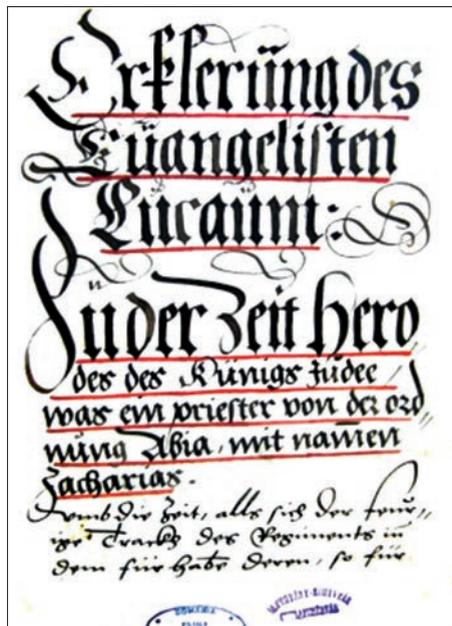 Erklerüng des
Eüangelisten
Lücaüm:
Jn der Zeit Hero
des des Künigs Judee /
was ein priester von der ord„
nüng Abia, mit namen
Zacharias.
Vmb die Zeit, alls sich der feur„
ige Trackh des Regiments in
dem für habe deren, so für